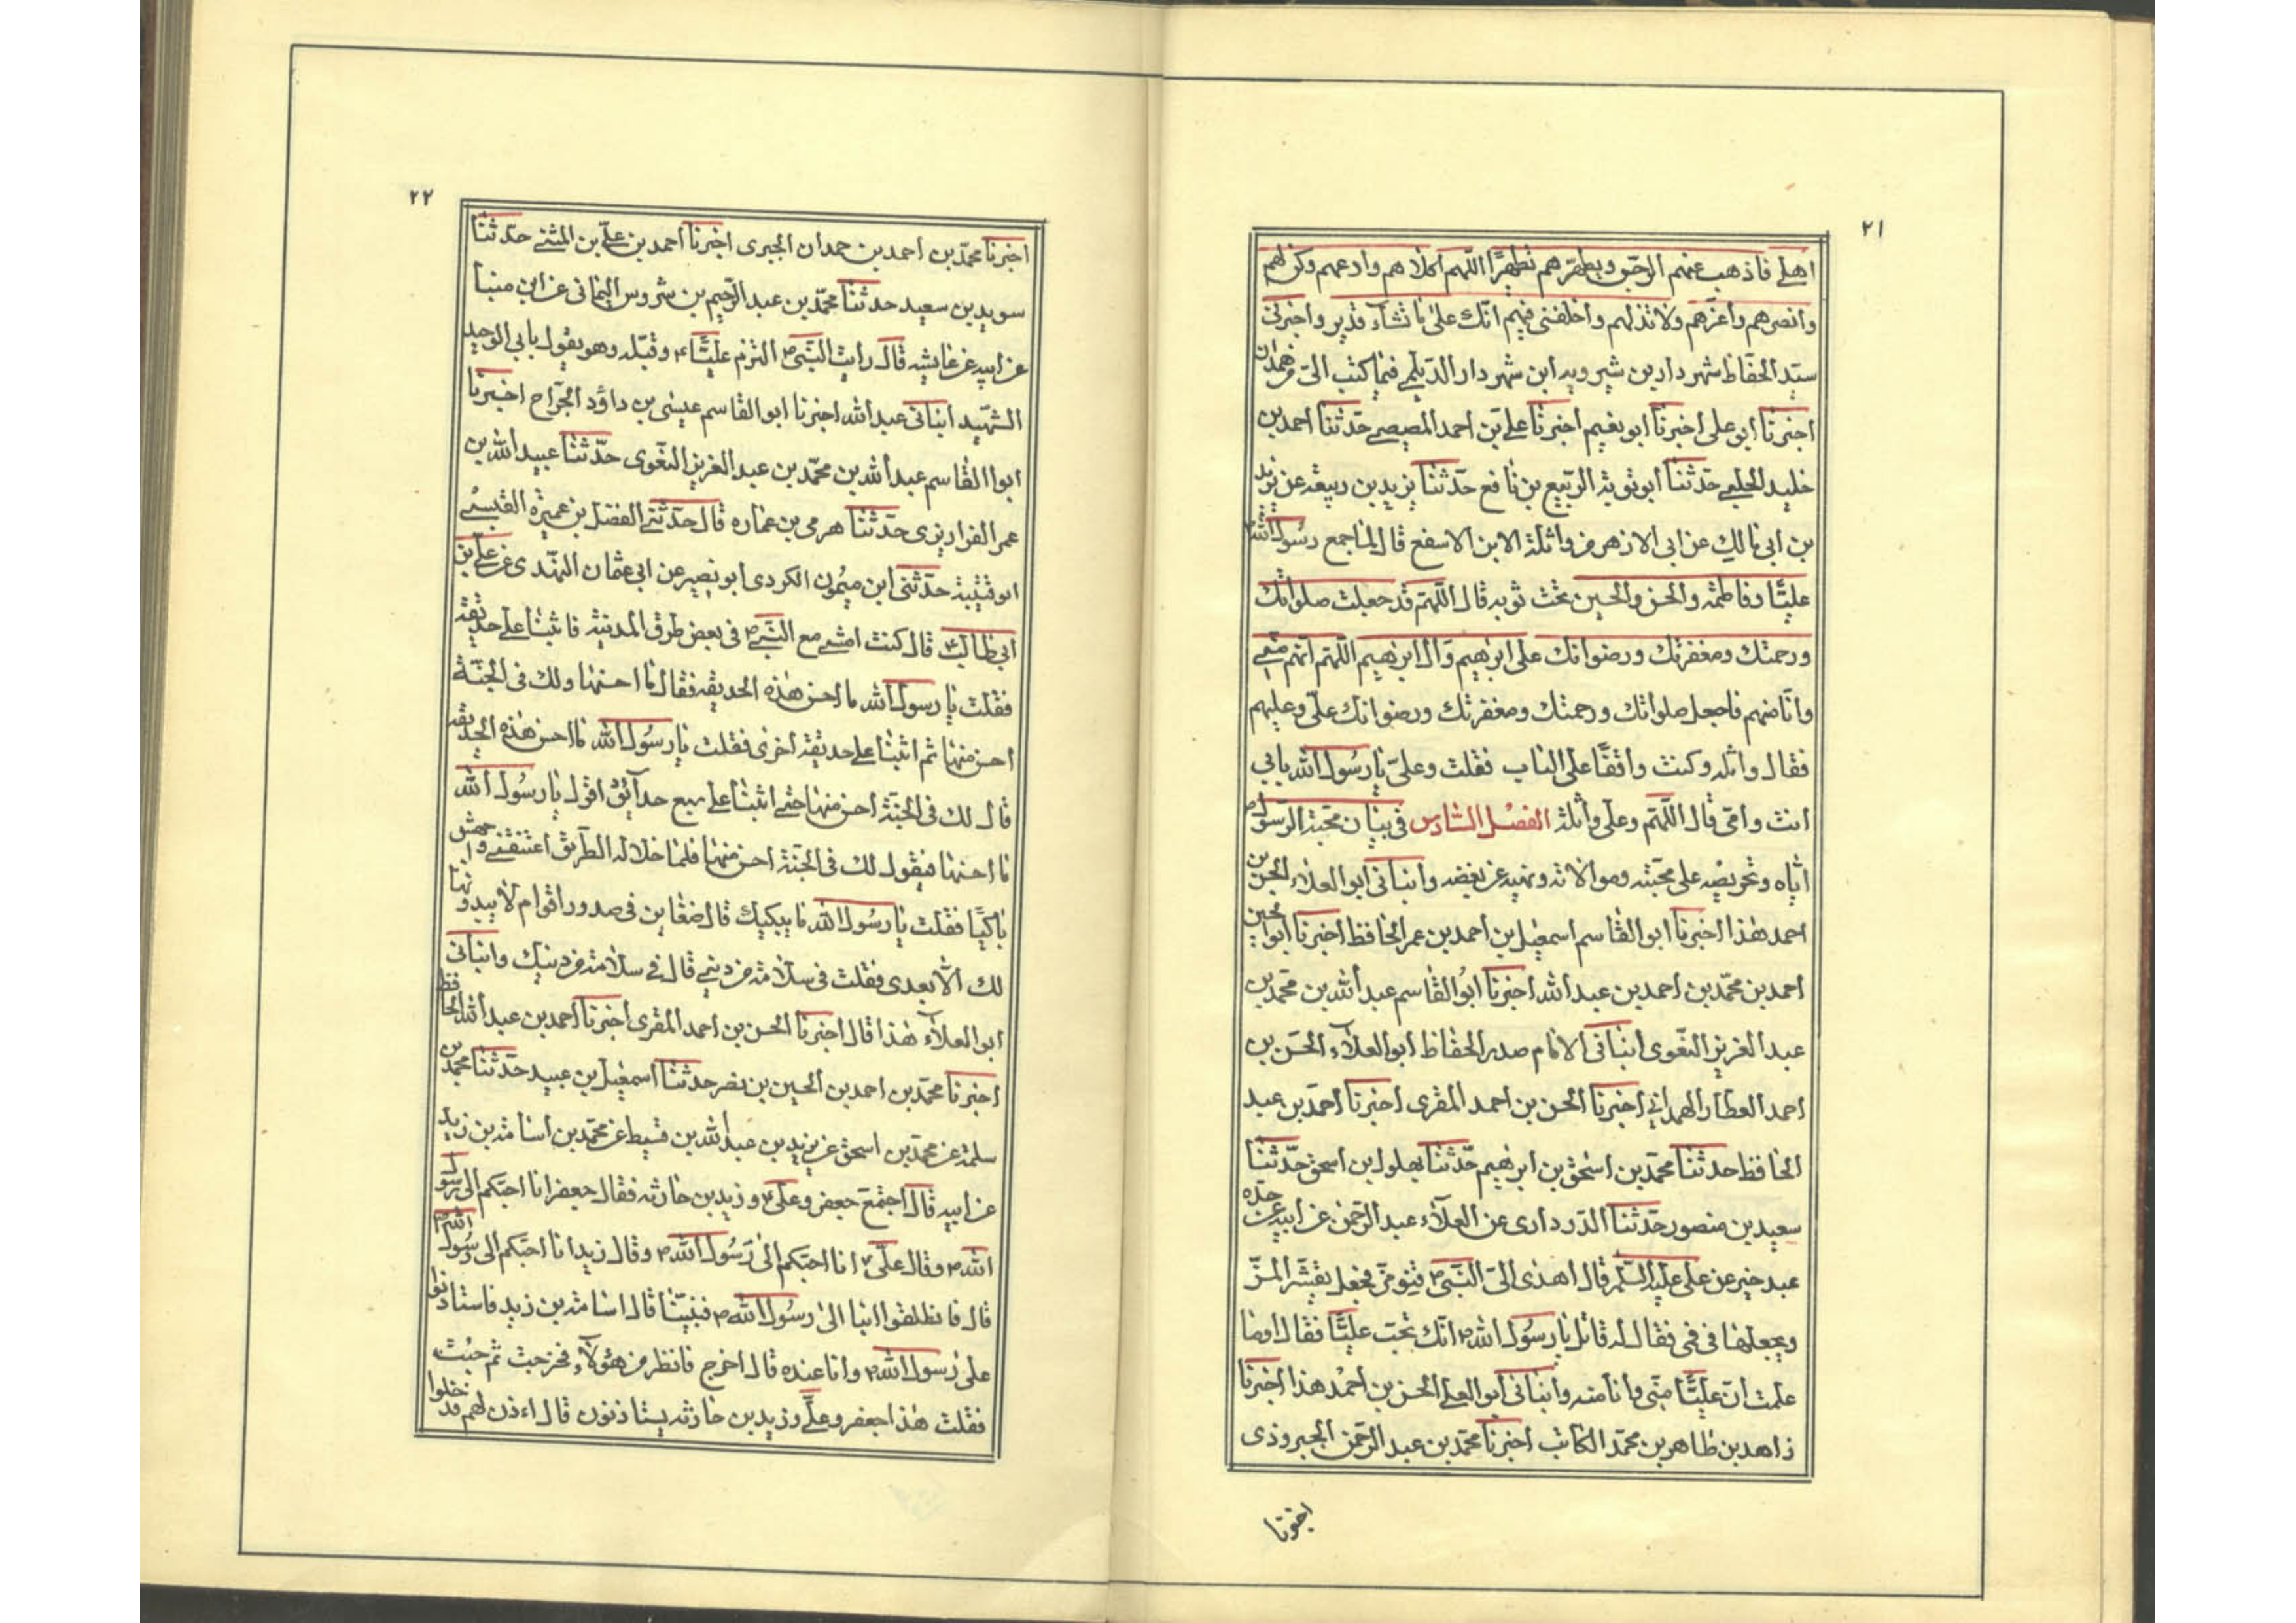 ٢١
اهلي فاذهب عنهم الرجس ويطهّرهم تطهيرًا اللهم اكلاهم وادعهم وكن لهم
وانصرهم واعزّهم ولا تذلهم واخلفنى فيهم انّك على ما تشآء قدير واخبرنى
سيّد الحفّاظ شهردار بن شيرويه ابن شهردار الدّيلمي فيما كتب الىّ من همدان
اخبرنا ابو على اخبرنا ابو نعيم اخبرنا علي بن احمد المصيصے حدّثنا احمد بن
خليد الحلبے حدّثنا ابو توبة الرّبيع بن نافع حدّثنا يزيد بن ربيعة عن يزيد
بن ابى مالك عن ابى الازهر من واثلة الابن الاسفع قال لمّا جمع رسُول الله ص
عليًّا وفاطمة والحسن والحسين تحت ثوبه قال اللّهمّ قد جعلت صلواتك
ورحمتك ومغفرتك ورضوانك على ابرٰهيم وآل ابرٰهيم اللّهمّ انهم منّے
وانا منهم فاجعل صلواتك ورحمتك ومغفرتك ورضوانك علىّ وعليهم
فقال واثله وكنت واقفًا على الباب فقلت وعلىّ يا رسُول الله بابي
انت وامّى قال اللّهمّ وعلى واثلة الفصْل السّادس فى بيان محبّة الرّسول ص
ايّاه وتحريضه على محبّته وموالاته ونهيه عن بغضه وانبانى ابو العلاء الحسن بن
احمد هٰذا اخبرنا ابو القاسم اسمعيل بن احمد بن عمر الحافظ اخبرنا ابو الحسين
احمد بن محمّد بن احمد بن عبد الله اخبرنا ابُو القاسم عبد الله بن محمّد بن
عبد العزيز البغوى انبانى الامام صدر الحفّاظ ابو العلآء الحسَن بن
احمد العطّار الهمدانى اخبرنا الحسن بن احمد المقرى اخبرنا احمد بن عبد
الحافظ حدثنا محمّد بن اسحٰق بن ابرٰهيم حدّثنا بهلول ابن اسحق حدّثنا
سعيد بن منصور حدّثنا الدّرداردى عن العلآء عبد الرّحمٰن عن ابيه عن جدّه
عبد خير عن على عليه السّلم قال اهدى الىّ النّبىّ ص قنو موّز فجعل يقشّر الموّز
ويجعلها فى فى فقال له قائل يا رسُول الله ص انّك تحبّ عليًّا فقال اوما
علمت انّ عليًّا منّى وانا منه وانبانى ابو العلے الحسن بن احمد هذا اخبرنا
زاهد بن طاهر بن محمّد الكاتب اخبرنا محمّد بن عبد الرّحمٰن الجبروذى
اخبرنا
٢٢
اخبرنا محمّد بن احمد بن حمدان الجبرى اخبرنا احمد بن علىّ بن المثنے حدّثنا
سويد بن سعيد حدثنا محمّد بن عبد الرّحيم بن شروس اليمانى عن ابن مينا
عن ابيه عن عايشه قالت رايت النّبىّ ص التزم عليًّا ع وقبّله وهو يقول بابي الوحيد
الشّهيد انبانى عبد الله اخبرنا ابو القاسم عيسٰى بن داؤد الجرّاح اخبرنا
ابو القاسم عبد الله بن محمّد بن عبد العزيز البغوى حدّثنا عبيد الله بن
عمر القواريرى حدّثنا هرمى بن عماره قال حدّثنے الفضل بن عميرة القيسے
ابو قتيبة حدّثنى ابن ميمُون الكردى ابو نصير عن ابى عثمان النّهدى عن علىّ بن
ابى طالب ع قال كنت امشے مع النّبىّ ص فى بعض طرق المدينة فاتينا على حديقة
فقلت يا رسول الله ما احسن هٰذه الحديقه فقال ما احسنها ولك فى الجنّة
احسن منها ثم اتينا على حديقة اخرى فقلت يا رسُول الله ما احسن هٰذه الحديقة
قال لك فى الجنّة احسن منها حتّے اتينا على سبع حدآئق اقول يا رسُول الله
ما احسنها فيقول لك فى الجنّة احسن منها فلمّا خلا له الطّريق اعتنقنے واجهش
باكيًا فقلت يا رسُول الله ما يبكيك قال ضغاين فى صدور اقوام لا يبدونها
لك الّا بعدى فقلت فى سلامة من دينے قال فے سلامة من دينك وانبانى
ابو العلآء هٰذا قال اخبرنا الحسن بن احمد المقرى اخبرنا احمد بن عبد الله الحافظ
اخبرنا محمّد بن احمد بن الحسين بن نصر حدثنا اسمٰعيل بن عبيد حدّثنا محمّد بن
سلمة عن محمّد بن اسحٰق عن يزيد بن عبد الله بن قسيط عن محمّد بن اسامة بن زيد
عن ابيه قال اجتمَع جعفر وعلى ع وزيد بن حارثه فقال جعفر انا احبّكم الى رسول
الله ص وقال علىّ ع انا احبّكم الى رسُول الله ص وقال زيد انا احبّكم الى رسُول الله ص
قال فانطلقوا بنا الى رسُول الله ص فقال اسامة بن زيد فاستاذنوا
على رسول الله ص وانا عنده قال اخرج فانظر من هٰؤلآء فخرجت ثم جئت
فقلت هٰذا جعفر وعلىّ وزيد بن حارثه يستاذنون قال اءذن لهم فدخلوا